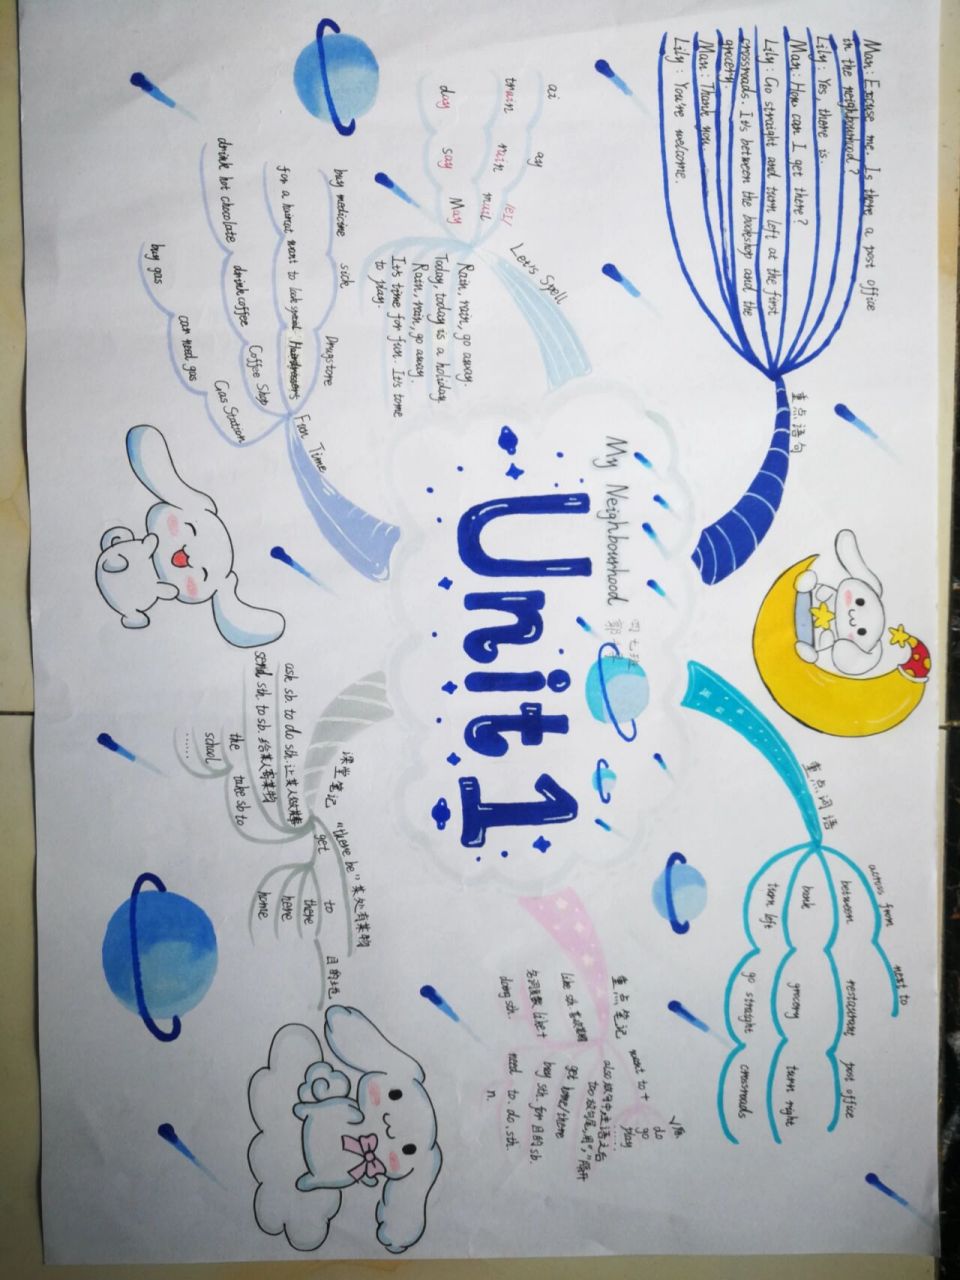 My Neighbourhood
Unit 1
重点语句
Man: Excuse me. Is there a post office
in the neighbourhood?
Lily: Yes, there is.
Man: How can I get there?
Lily: Go straight and turn left at the first
crossroads. It's between the bookshop and the
grocery.
Man: Thank you.
Lily: You're welcome.
重点词语
across from next to
between restaurant post office
bank grocery turn right
turn left go straight crossroads
Let's Spell
ai ay /eɪ/
train rain mail
day say May
Rain, rain, go away.
Today, today is a holiday
Rain, rain, go away.
It's time for fun. It's time
to play.
Fun Time
buy medicine sick Drugstore
for a haircut want to look great Hairdressers
drink hot chocolate drink coffee Coffee Shop
buy gas car need gas Gas Station
课堂笔记
"there be" 某处有某物
get to 目的地
there
here
home
ask sb. to do sth. 让某人做某事
send sth. to sb. 给某人寄某物
the take sb to
school
……
重点笔记
want to +
do
go
play
also 放句中,主语之后
too 放句尾,用","隔开
like sth.
like +
doing sth.
get home/there
buy sth. for 目的 sb.
need to. do. sth.
n.